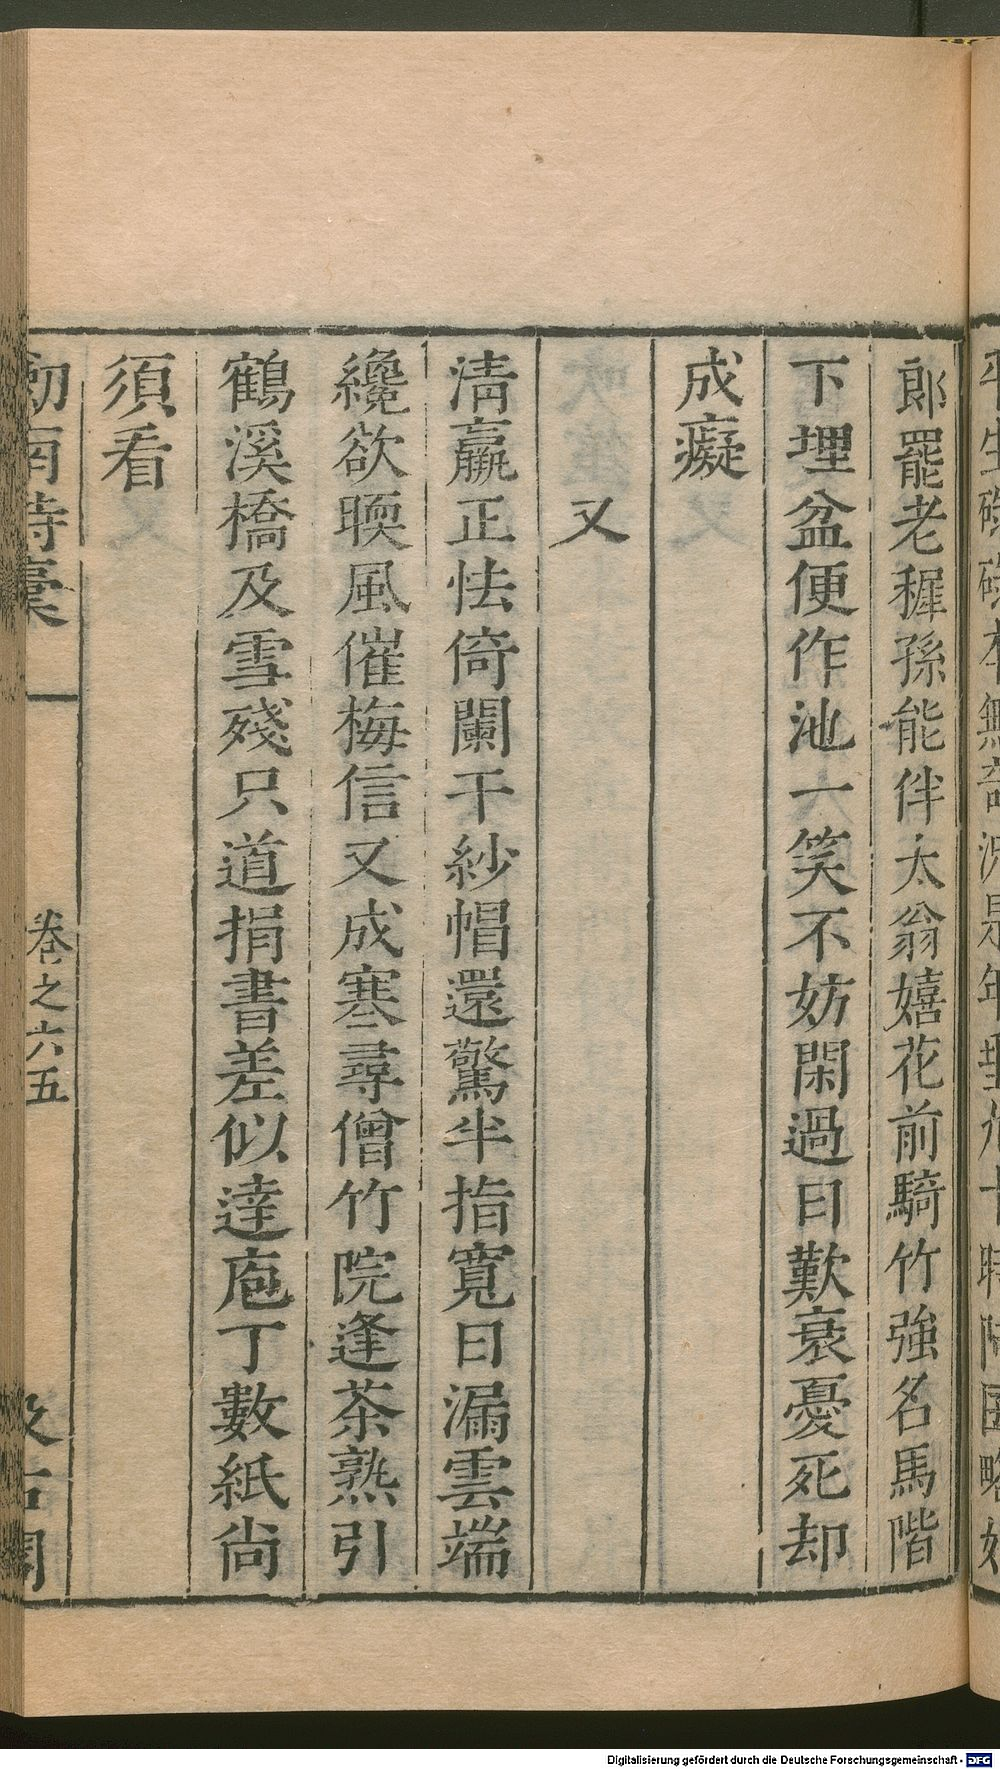 郎罷老穉孫能伴太翁嬉花前騎竹強名馬階
下埋盆便作池一笑不妨閑過日歎衰憂死却
成癡
又
淸羸正怯倚闌干紗帽還驚半指寬日漏雲端
纔欲暝風催梅信又成寒尋僧竹院逢茶熟引
鶴溪橋及雪殘只道捐書差似達庖丁數紙尙
須看
劎南詩稾
卷之六五
汲古閣
Digitalisierung gefördert durch die Deutsche Forschungsgemeinschaft - DFG